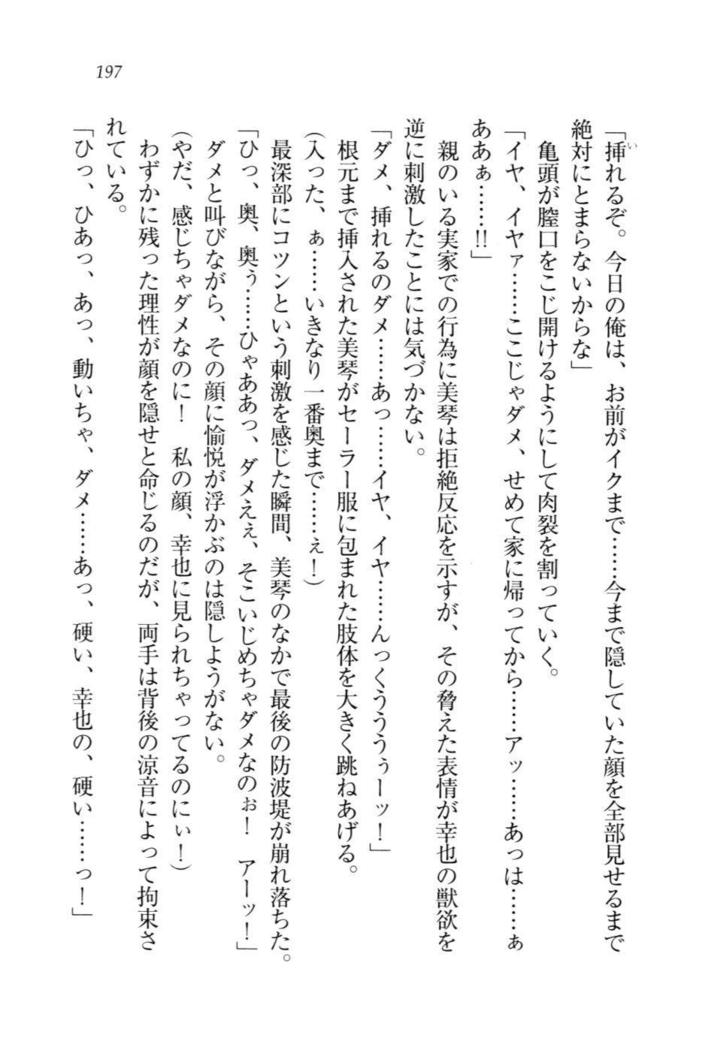 197
「挿れるぞ。今日の俺は、お前がイクまで……今まで隠していた顔を全部見せるまで
絶対にとまらないからな」
亀頭が膣口をこじ開けるようにして肉裂を割っていく。
「イヤ、イヤァ……ここじゃダメ、せめて家に帰ってから……アッ……あっは……ぁ
ああぁ……!!」
親のいる実家での行為に美琴は拒絶反応を示すが、その脅えた表情が幸也の獣欲を
逆に刺激したことには気づかない。
「ダメ、挿れるのダメ……あっ……イヤ、イヤ……んっくうううぅーッ！」
根元まで挿入された美琴がセーラー服に包まれた肢体を大きく跳ねあげる。
(入った、ぁ……いきなり一番奥まで……ぇ！)
最深部にコツンという刺激を感じた瞬間、美琴のなかで最後の防波堤が崩れ落ちた。
「ひっ、奥、奥ぅ……ひゃああっ、ダメえぇ、そこいじめちゃダメなのぉ！　アーッ！」
ダメと叫びながら、その顔に愉悦が浮かぶのは隠しようがない。
(やだ、感じちゃダメなのに！　私の顔、幸也に見られちゃってるのにぃ！)
わずかに残った理性が顔を隠せと命じるのだが、両手は背後の涼音によって拘束さ
れている。
「ひっ、ひあっ、あっ、動いちゃ、ダメ……あっ、硬い、幸也の、硬い……っ！」